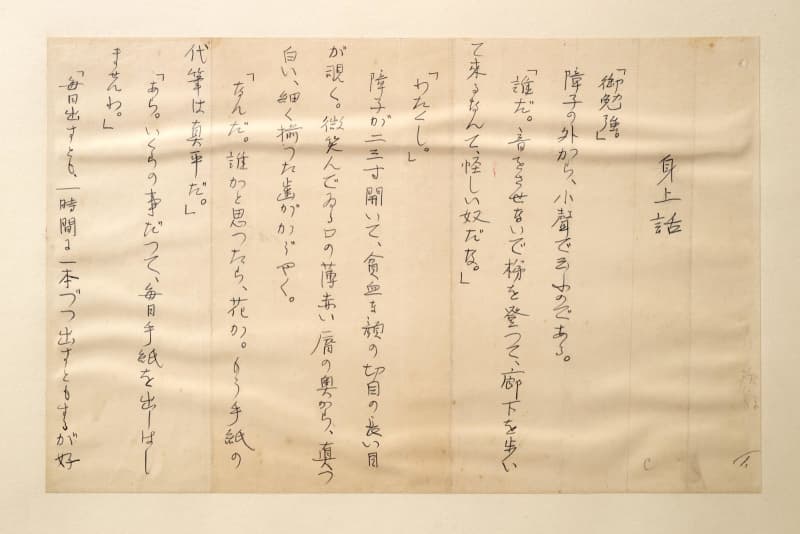 身上話
「御勉強。」
障子の外から、小聲で云ふのである。
「誰だ。音をさせないで梯を登つて、廊下を歩い
て來るなんて、怪しい奴だな。」
「わたくし。」
障子が二三寸開いて、貧血な顔の切目の長い目
が覗く。微笑んでゐる口の薄赤い唇の奥から、真つ
白い、細く揃つた歯がかゞやく。
「なんだ。誰かと思つたら、花か。もう手紙の
代筆は真平だ。」
「あら。いくらの事だつて、毎日手紙を出しはし
ませんわ。」
「毎日出すとも、一時間に一本づつ出すともするが好